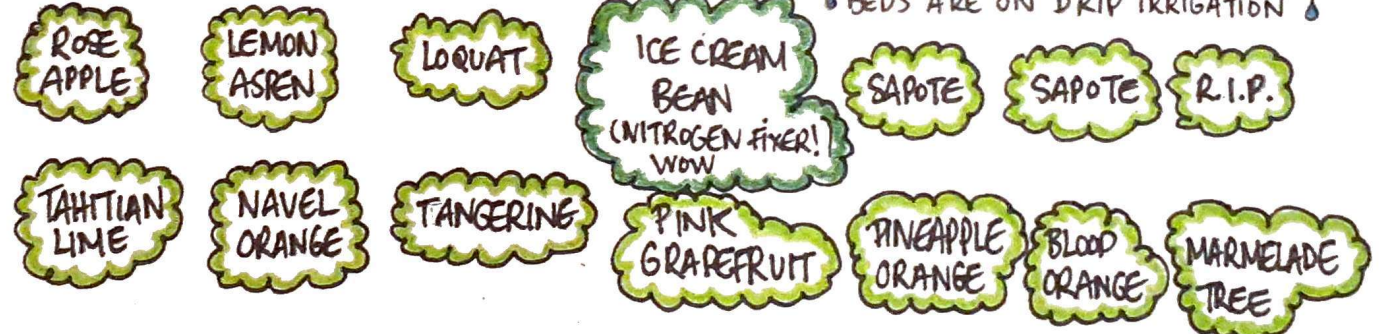 BEDS ARE ON DRIP IRRIGATION
ROSE
APPLE
LEMON
ASPEN
LOQUAT
ICE CREAM
BEAN
(NITROGEN FIXER!
WOW
SAPOTE
SAPOTE
R.I.P.
TAHITIAN
LIME
NAVEL
ORANGE
TANGERINE
PINK
GRAPEFRUIT
PINEAPPLE
ORANGE
BLOOD
ORANGE
MARMELADE
TREE